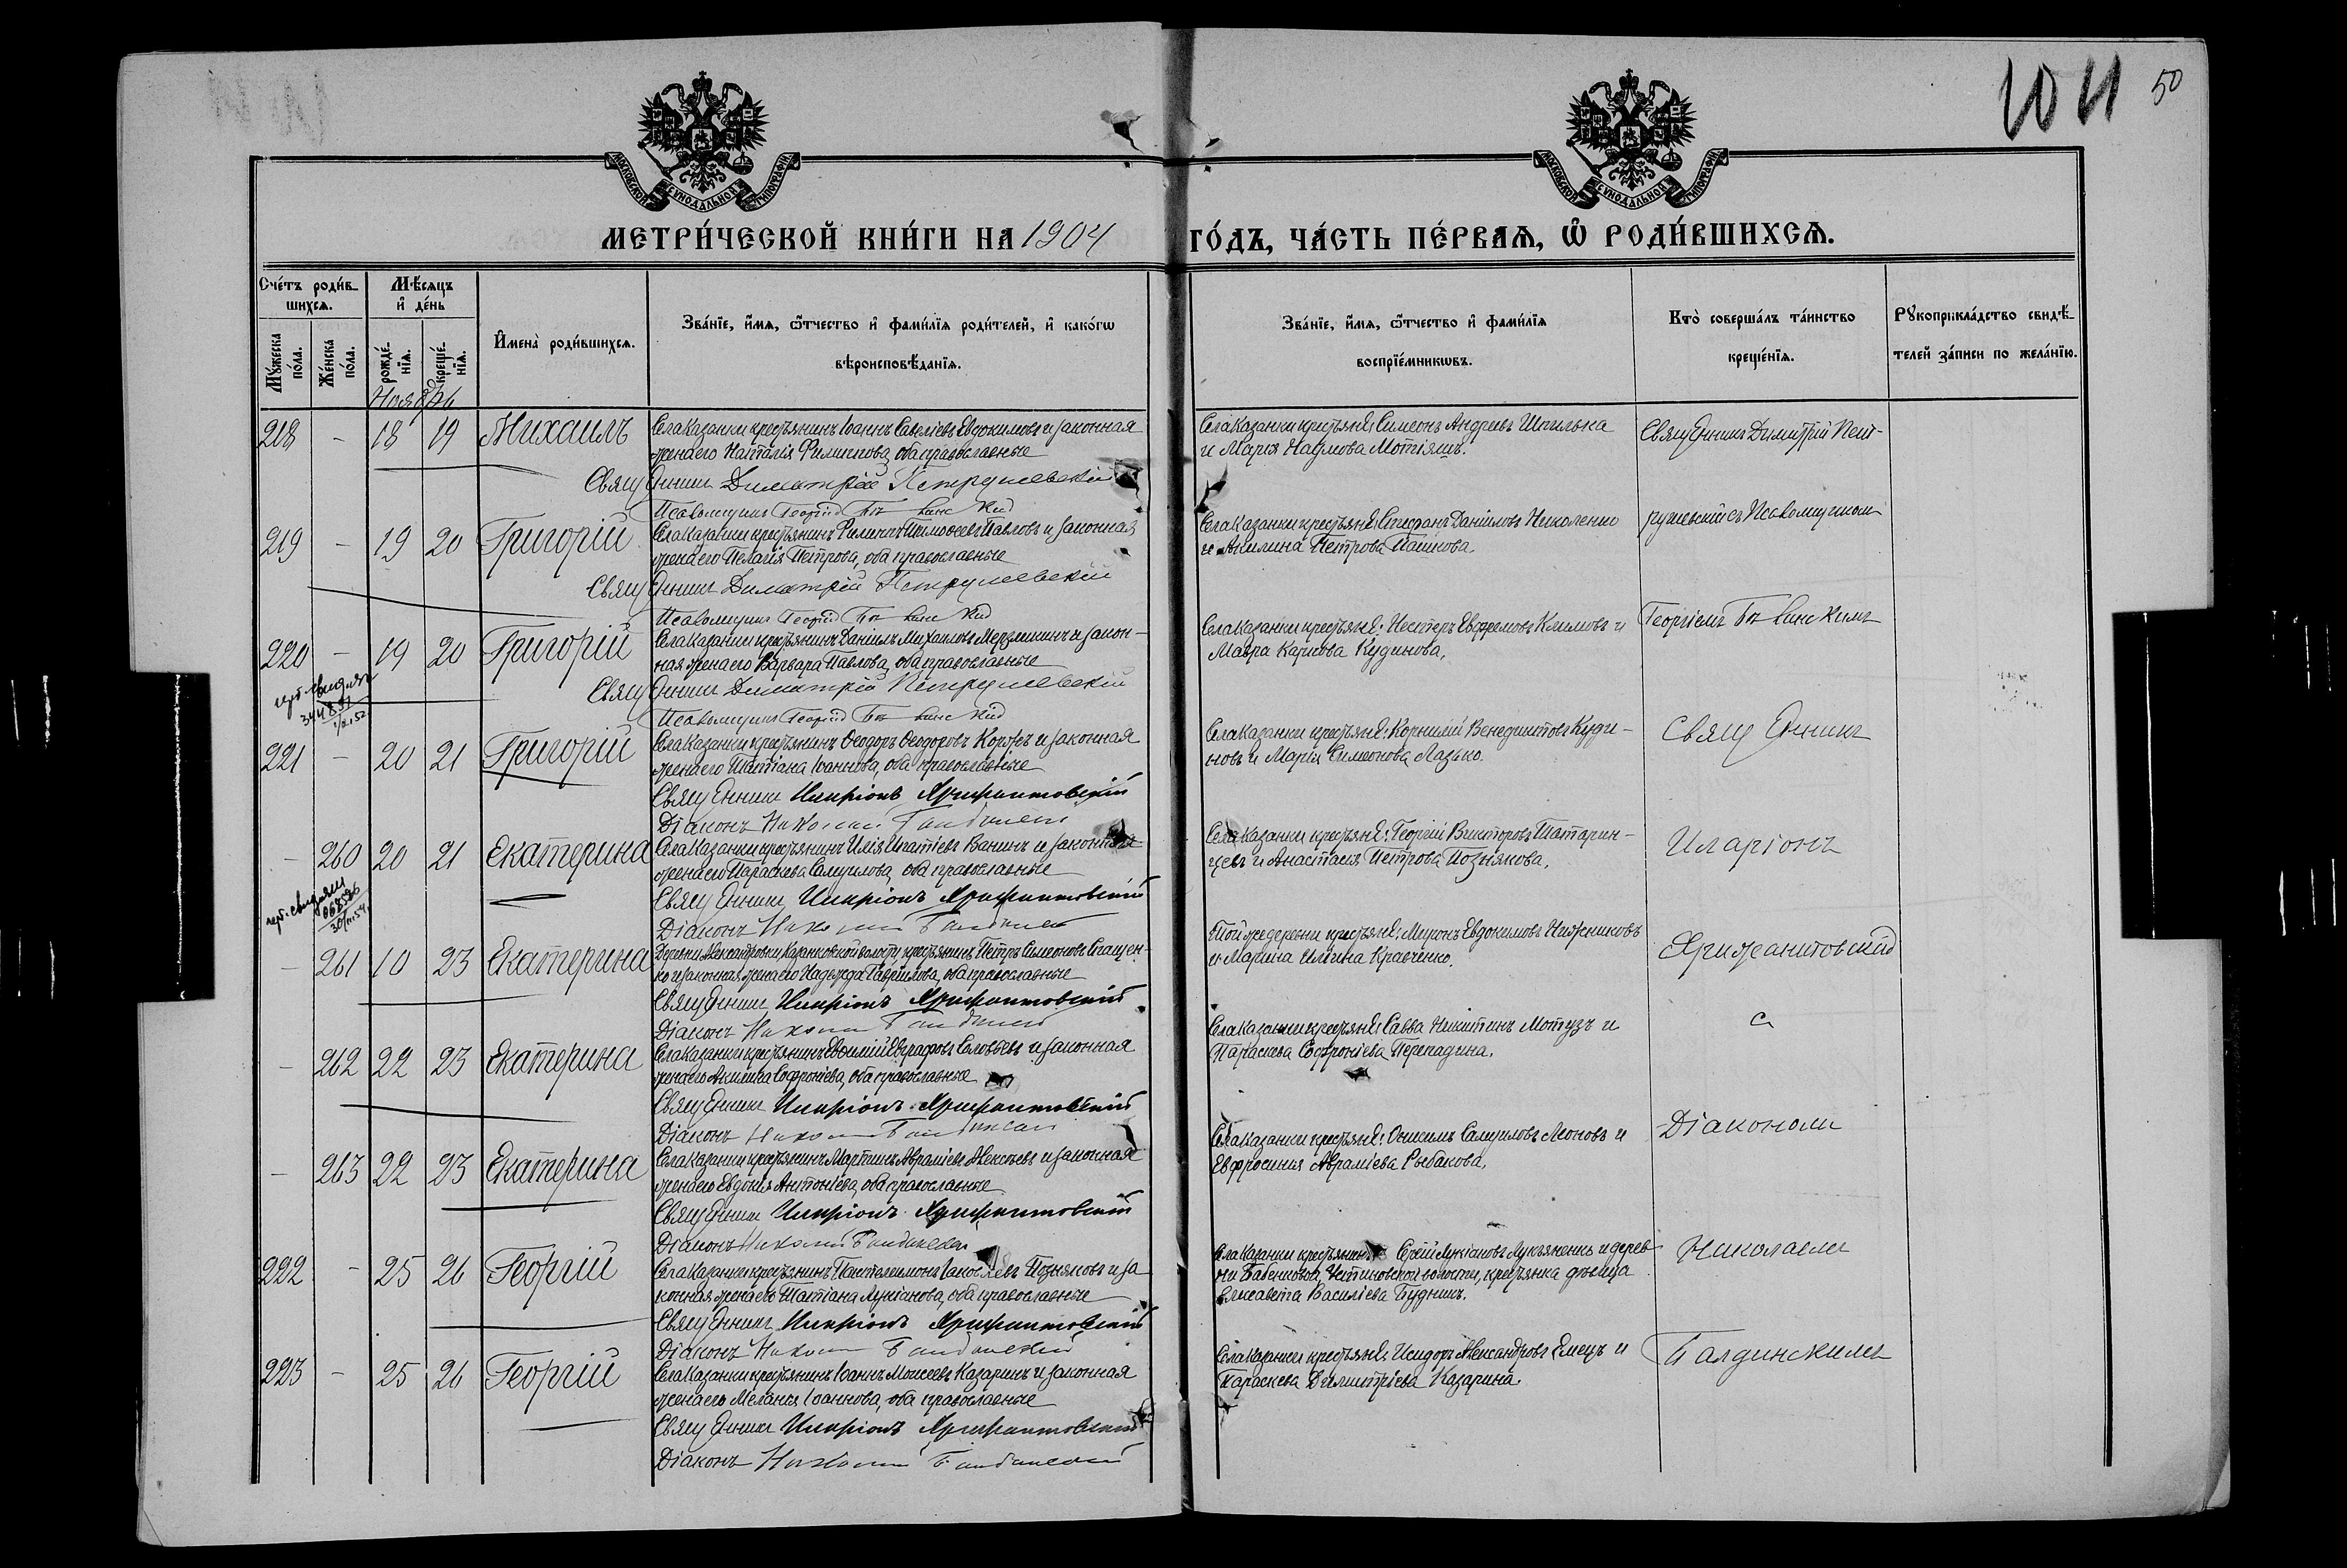 10 11 50
МОСКОВСКОЙ СѴНОДАЛЬНОЙ ТИПОГРАФІИ
МОСКОВСКОЙ СѴНОДАЛЬНОЙ ТИПОГРАФІИ
МЕТРИ́ЧЕСКОЙ КНИ́ГИ НА 1904 ГО́ДЪ, ЧА́СТЬ ПЕ́РВАѦ, Ѡ҆ РОДИ́ВШИХСѦ.
Сче́тъ роди́в-
шихсѧ.
Мꙋ́жеска
по́ла.
Же́нска
по́ла.
Мѣ́сѧцъ
и҆ де́нь
рожде́-
нїѧ.
креще́-
нїѧ.
Ноябрь
И҆мена̀ роди́вшихсѧ.
Зва́нїе, и҆́мѧ, ѻ҆́тчество и҆ фами́лїѧ роди́телей, и҆ како́гѡ
вѣроисповѣ́данїѧ.
Зва́нїе, и҆́мѧ, ѻ҆́тчество и҆ фами́лїѧ
воспрїе́мникѡвъ.
Кто̀ соверша́лъ та́инство
креще́нїѧ.
Рꙋкоприкла́дство свидѣ́-
телей за́писи по жела́нїю.
218 - 18 19 Михаилъ
Села Казанки крестьянинъ Іоаннъ Савеліевъ Евдокимовъ и законная
жена его Наталія Филиппова, оба православные
Священникъ Димитрій Петрушевскій
Псаломщикъ Георгій
Села Казанки крестьяне: Симеонъ Андреевъ Шпилька
и Марія Наумова Мотіяшъ.
Священникъ Димитрій Пет-
219 - 19 20 Григорій
Села Казанки крестьянинъ Филиппъ Тимофеевъ Павловъ и законная
жена его Пелагія Петрова, оба православные
Священникъ Димитрій Петрушевскій
Псаломщикъ Георгій
Села Казанки крестьяне: Стефанъ Даніиловъ Николенко
и Акилина Петрова Пашкова.
рушевскій съ Псаломщикомъ
220 - 19 20 Григорій
Села Казанки крестьянинъ Даніилъ Михаиловъ Мерзликинъ и закон-
ная жена его Варвара Павлова, оба православные
Священникъ Димитрій Петрушевскій
Псаломщикъ Георгій
Села Казанки крестьяне: Нестеръ Ефремовъ Климовъ и
Мавра Карпова Кудинова.
Георгіемъ
344891
221 - 20 21 Григорій
Села Казанки крестьянинъ Ѳеодоръ Ѳеодоровъ Коржъ и законная
жена его Татіана Іоаннова, оба православные
Священникъ Иларіонъ Крижантовскій
Діаконъ Николай
Села Казанки крестьяне: Корнилій Венедиктовъ Куди-
новъ и Марія Симеонова Лазько.
Священникъ
- 260 20 21 Екатерина
Села Казанки крестьянинъ Илія Игнатіевъ Ванинъ и законная
жена его Параскева Самуилова, оба православные
Священникъ Иларіонъ Крижантовскій
Діаконъ Николай
Села Казанки крестьяне: Георгій Викторовъ Татарин-
цевъ и Анастасія Петрова Познякова.
Иларіонъ
- 261 10 23 Екатерина
Деревни Александровки Казанковской волости, крестьянинъ Петръ Симеоновъ Сташен-
ко и законная жена его Надежда Гавріилова, оба православные
Священникъ Иларіонъ Крижантовскій
Діаконъ Николай
Той же деревни крестьяне: Миронъ Евдокимовъ Нижниковъ
и Марина Иліина Кравченко.
Крижантовскій
- 262 22 23 Екатерина
Села Казанки крестьянинъ Евѳимій Евграфовъ Соловьевъ и законная
жена его Акилина Софроніева, оба православные
Священникъ Иларіонъ Крижантовскій
Діаконъ Николай
Села Казанки крестьяне: Савва Никитинъ Мотузъ и
Параскева Софроніева Перепадина.
съ
- 263 22 23 Екатерина
Села Казанки крестьянинъ Мартинъ Авраміевъ Алексѣевъ и законная
жена его Евдокія Антоніева, оба православные
Священникъ Иларіонъ Крижантовскій
Діаконъ Николай
Села Казанки крестьяне: Онисимъ Самуиловъ Леоновъ и
Евфросинія Авраміева Рыбакова.
Діакономъ
222 - 25 26 Георгій
Села Казанки крестьянинъ Пантелеимонъ Іаковлевъ Позняковъ и за-
конная жена его Татіана Лукіанова, оба православные
Священникъ Иларіонъ Крижантовскій
Діаконъ Николай
Села Казанки крестьянинъ Сергій Лукіановъ Лукьяненко и дерев-
ни Бабенковой, Устиновской волости, крестьянка дѣвица
Елисавета Василіева Будникъ.
Николаемъ
223 - 25 26 Георгій
Села Казанки крестьянинъ Іоаннъ Моисеевъ Казаринъ и законная
жена его Меланія Іоаннова, оба православные
Священникъ Иларіонъ Крижантовскій
Діаконъ Николай
Села Казанки крестьяне: Исидоръ Александровъ Емецъ и
Параскева Димитріева Казарина.